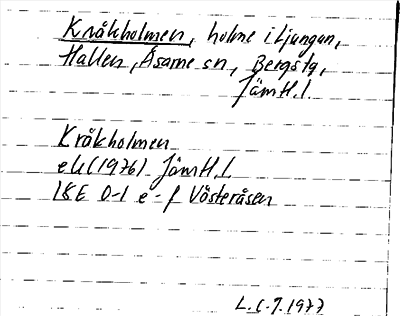 Kråkholmen, holme i Ljungan,
Hallen, Åsarne sn, Bergs tg,
Jämtl. l.
Kråkholmen
ek (1976) Jämtl. l.
18E 0-1 e-f Västeråsen
L. C. J. 1977